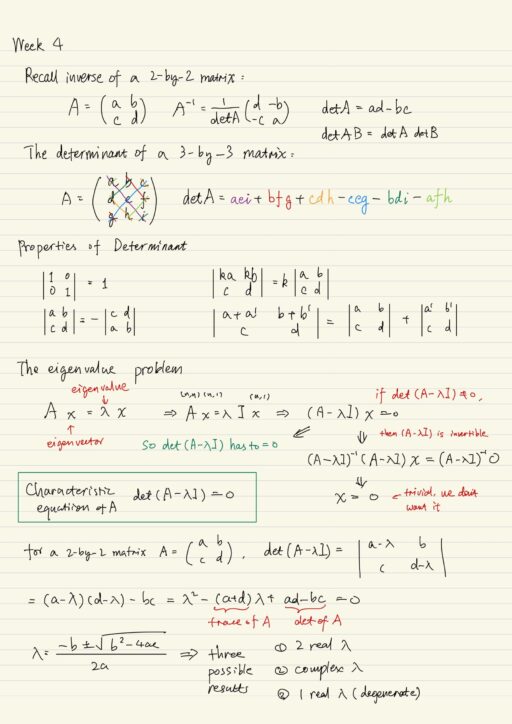 Week 4
Recall inverse of a 2-by-2 matrix:
A = (a b; c d)   A⁻¹ = 1/detA (d -b; -c a)   detA = ad-bc
detAB = detA detB
The determinant of a 3-by-3 matrix:
A = (a b c; d e f; g h i)   detA = aei + bfg + cdh - ceg - bdi - afh
Properties of Determinant
|1 0; 0 1| = 1   |ka kb; c d| = k |a b; c d|
|a b; c d| = - |c d; a b|   |a+a' b+b'; c d| = |a b; c d| + |a' b'; c d|
The eigenvalue problem
eigenvalue
A x = λ x ⇒ A x = λ I x ⇒ (A-λI) x = 0   if det(A-λI) ≠ 0,
eigenvector   so det(A-λI) has to = 0   then (A-λI) is invertible
(A-λI)⁻¹ (A-λI) x = (A-λI)⁻¹ 0
Characteristic equation of A   det(A-λI) = 0   x = 0 ← trivial, we don't want it
for a 2-by-2 matrix A = (a b; c d), det(A-λI) = |a-λ b; c d-λ|
= (a-λ)(d-λ) - bc = λ² - (a+d)λ + ad-bc = 0
trace of A   det of A
λ = (-b ± √(b²-4ac))/2a ⇒ three possible results   ① 2 real λ
② complex λ
③ 1 real λ (degenerate)